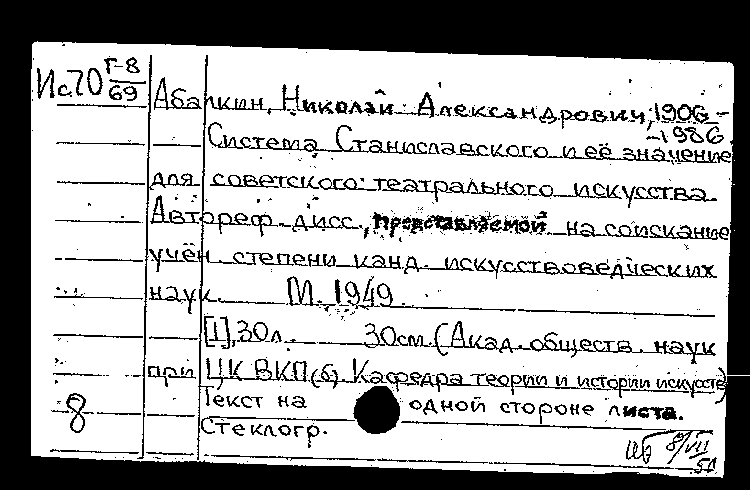 Ис70 Г-8/69
Абалкин, Николай Александрович, 1906-
-1986.
Система Станиславского и её значение
для советского театрального искусства.
Автореф. дисс., представляемой на соискание
учён. степени канд. искусствоведческих
наук. М. 1949.
[1], 30л. 30см. (Акад. обществ. наук
при ЦК ВКП(б). Кафедра теории и истории искусств)
Текст на одной стороне листа.
8 Стеклогр.
8/VII